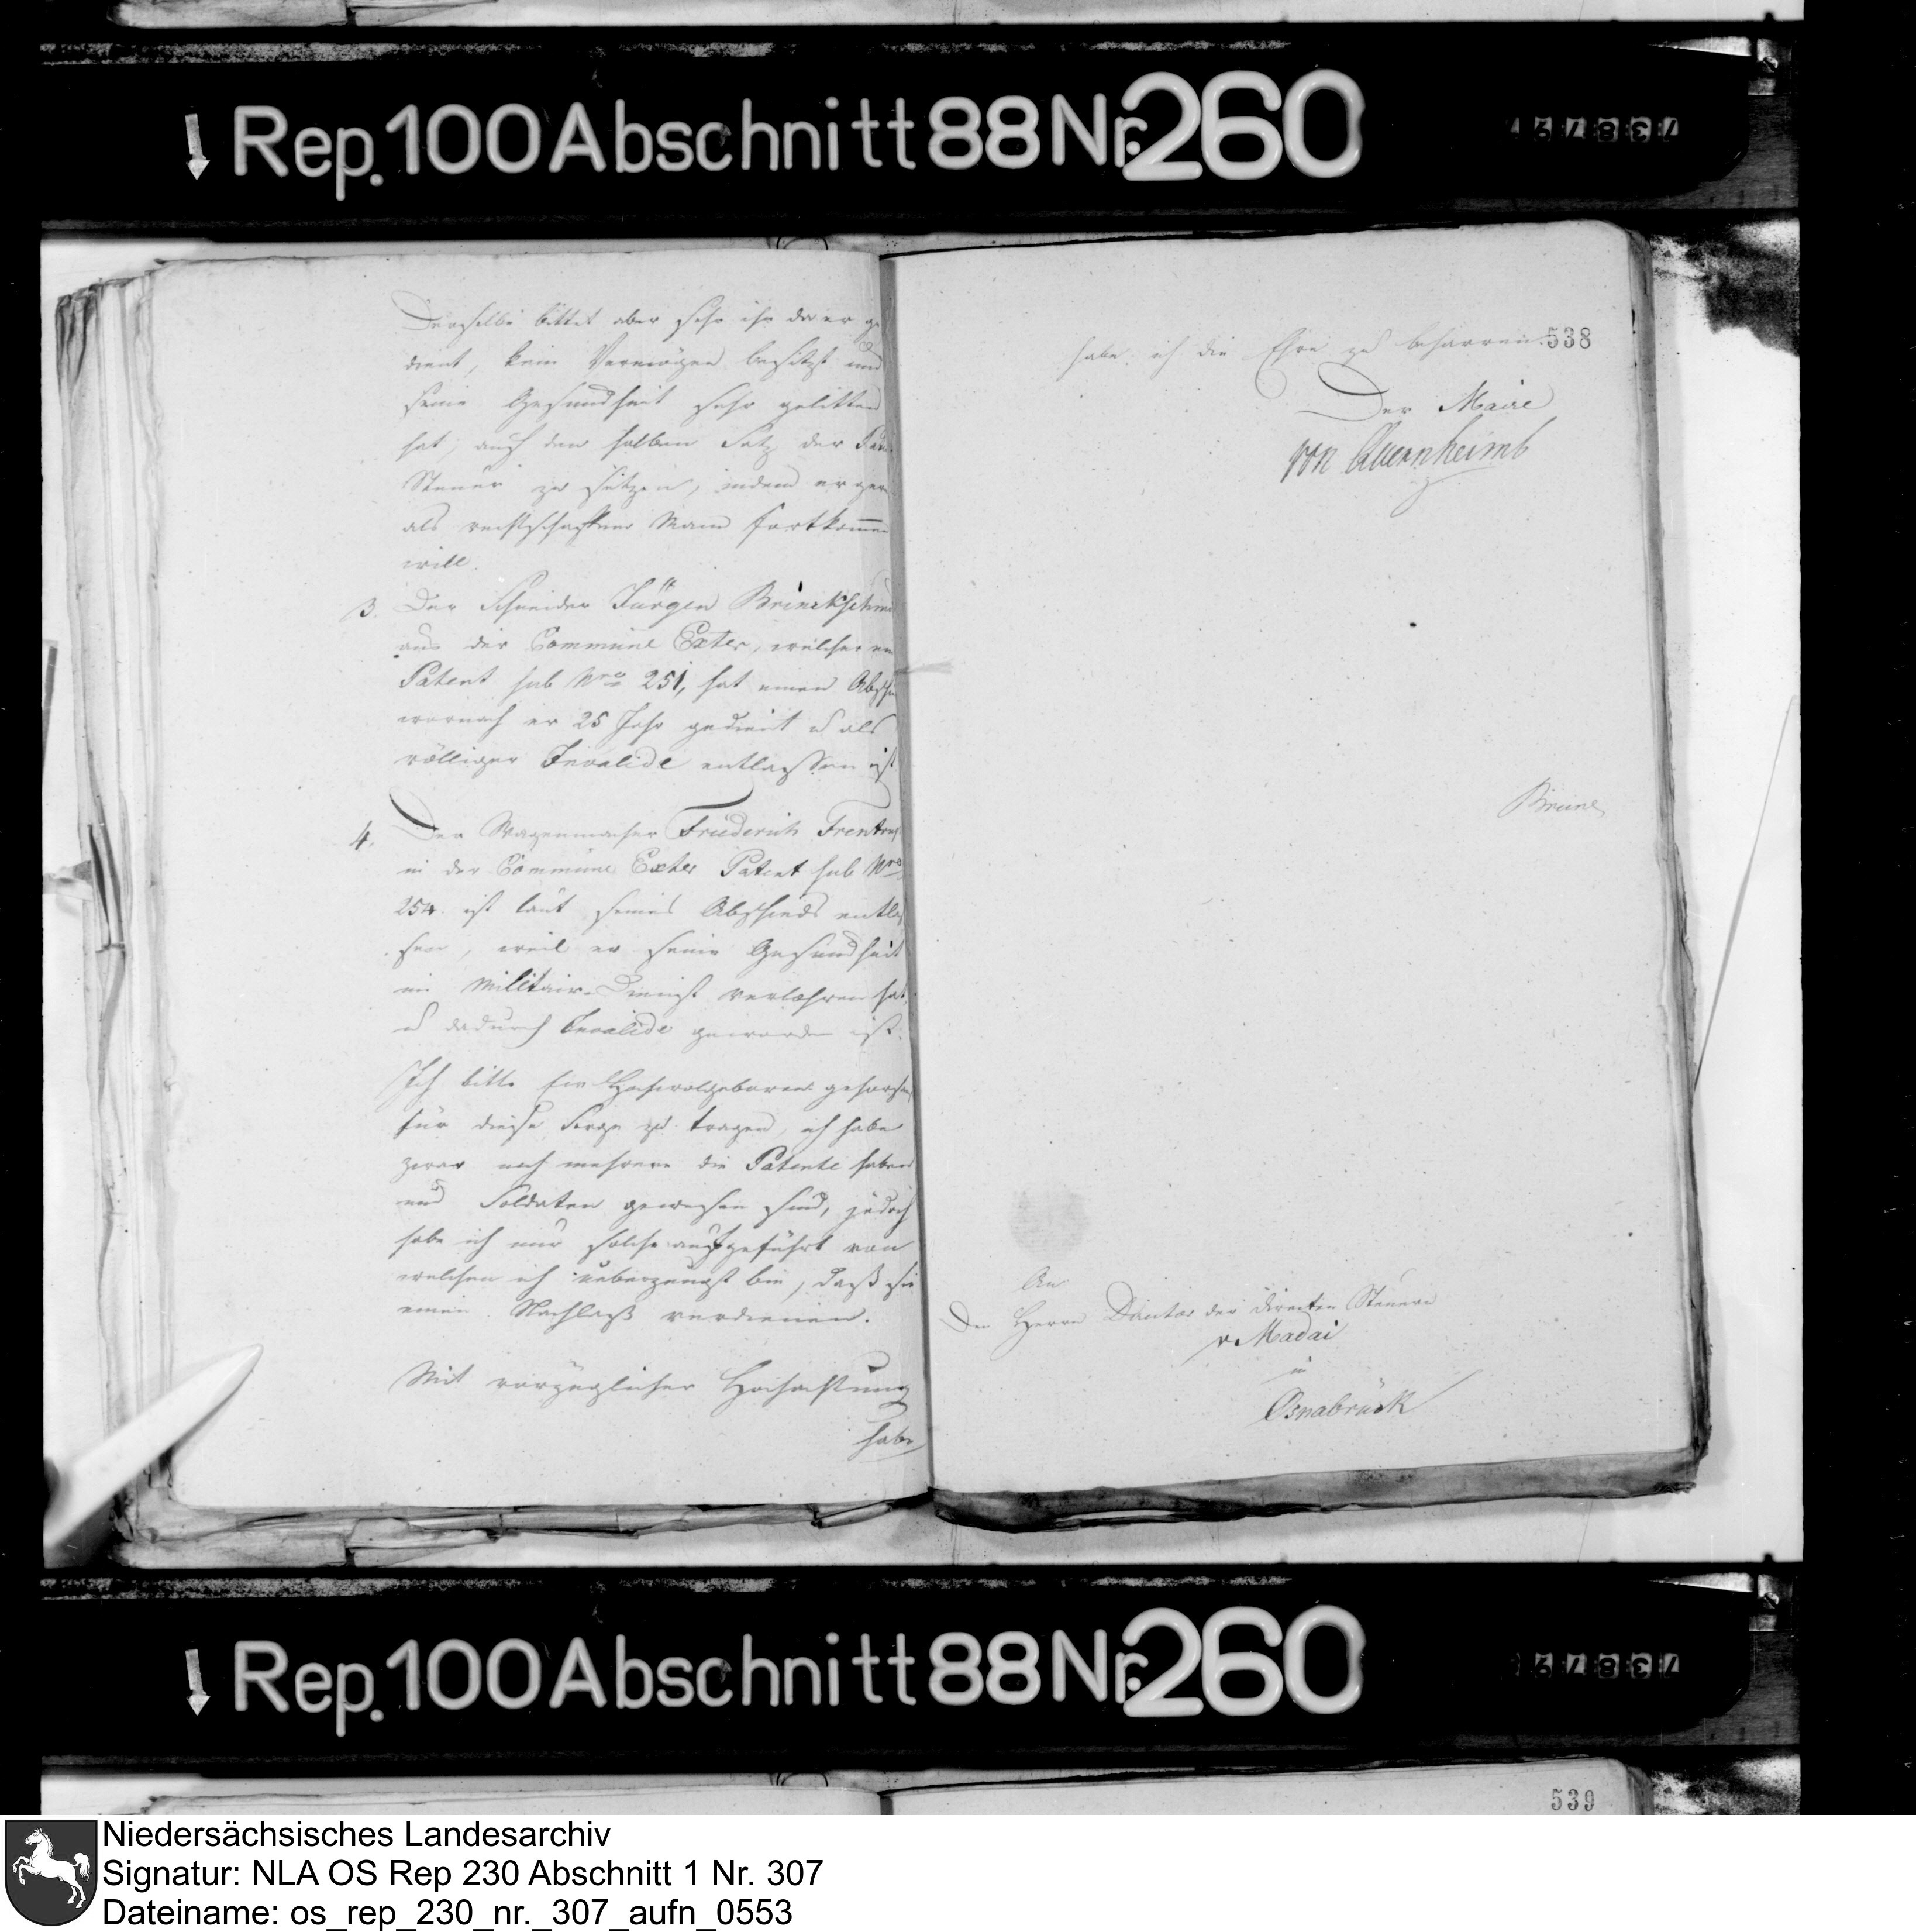 Rep. 100 Abschnitt 88 Nr. 260
Derselbe bittet aber sehr ihn da er ge
dient, kein Vermögen besitzt und
seine Gesundheit sehr gelitten
hat, auf den halben Satz der
Steuer zu setzen, indem er gern
als rechtschaffener Mann fortkommen
will.
3. Der Schneider Jürgen Brinckschm
aus der Commüne Exter, welcher ein
Patent sub Nro 251, hat einen Absch
wornach er 25 Jahr gedient u als
völliger Invalide entlassen ist
4. Der Wagenmacher Friederich
in der Commüne Exter Patent sub Nro
254. ist laut seines Abschieds entla
sen, weil er seine Gesundheit
im Militair-Dienst verlohren hat,
u dadurch Invalide geworden ist.
Ich bitte Ew Hochwolgebohren gehorsam
für diese Sorge zu tragen, ich habe
zwar noch mehrere die Patente haben
und Soldaten gewesen sind, jedoch
habe ich nur solche aufgeführt von
welchen ich ueberzeugt bin, daß sie
einen Nachlaß verdienen.
Mit vorzüglicher Hochachtung
habe
538
habe ich die Ehre zu beharren
Der Maire
von Quernheimb
An
Den Herrn der directen Steuern
v Madai
in
Osnabrück
Rep. 100 Abschnitt 88 Nr. 260
539
Niedersächsisches Landesarchiv
Signatur: NLA OS Rep 230 Abschnitt 1 Nr. 307
Dateiname: os_rep_230_nr._307_aufn_0553